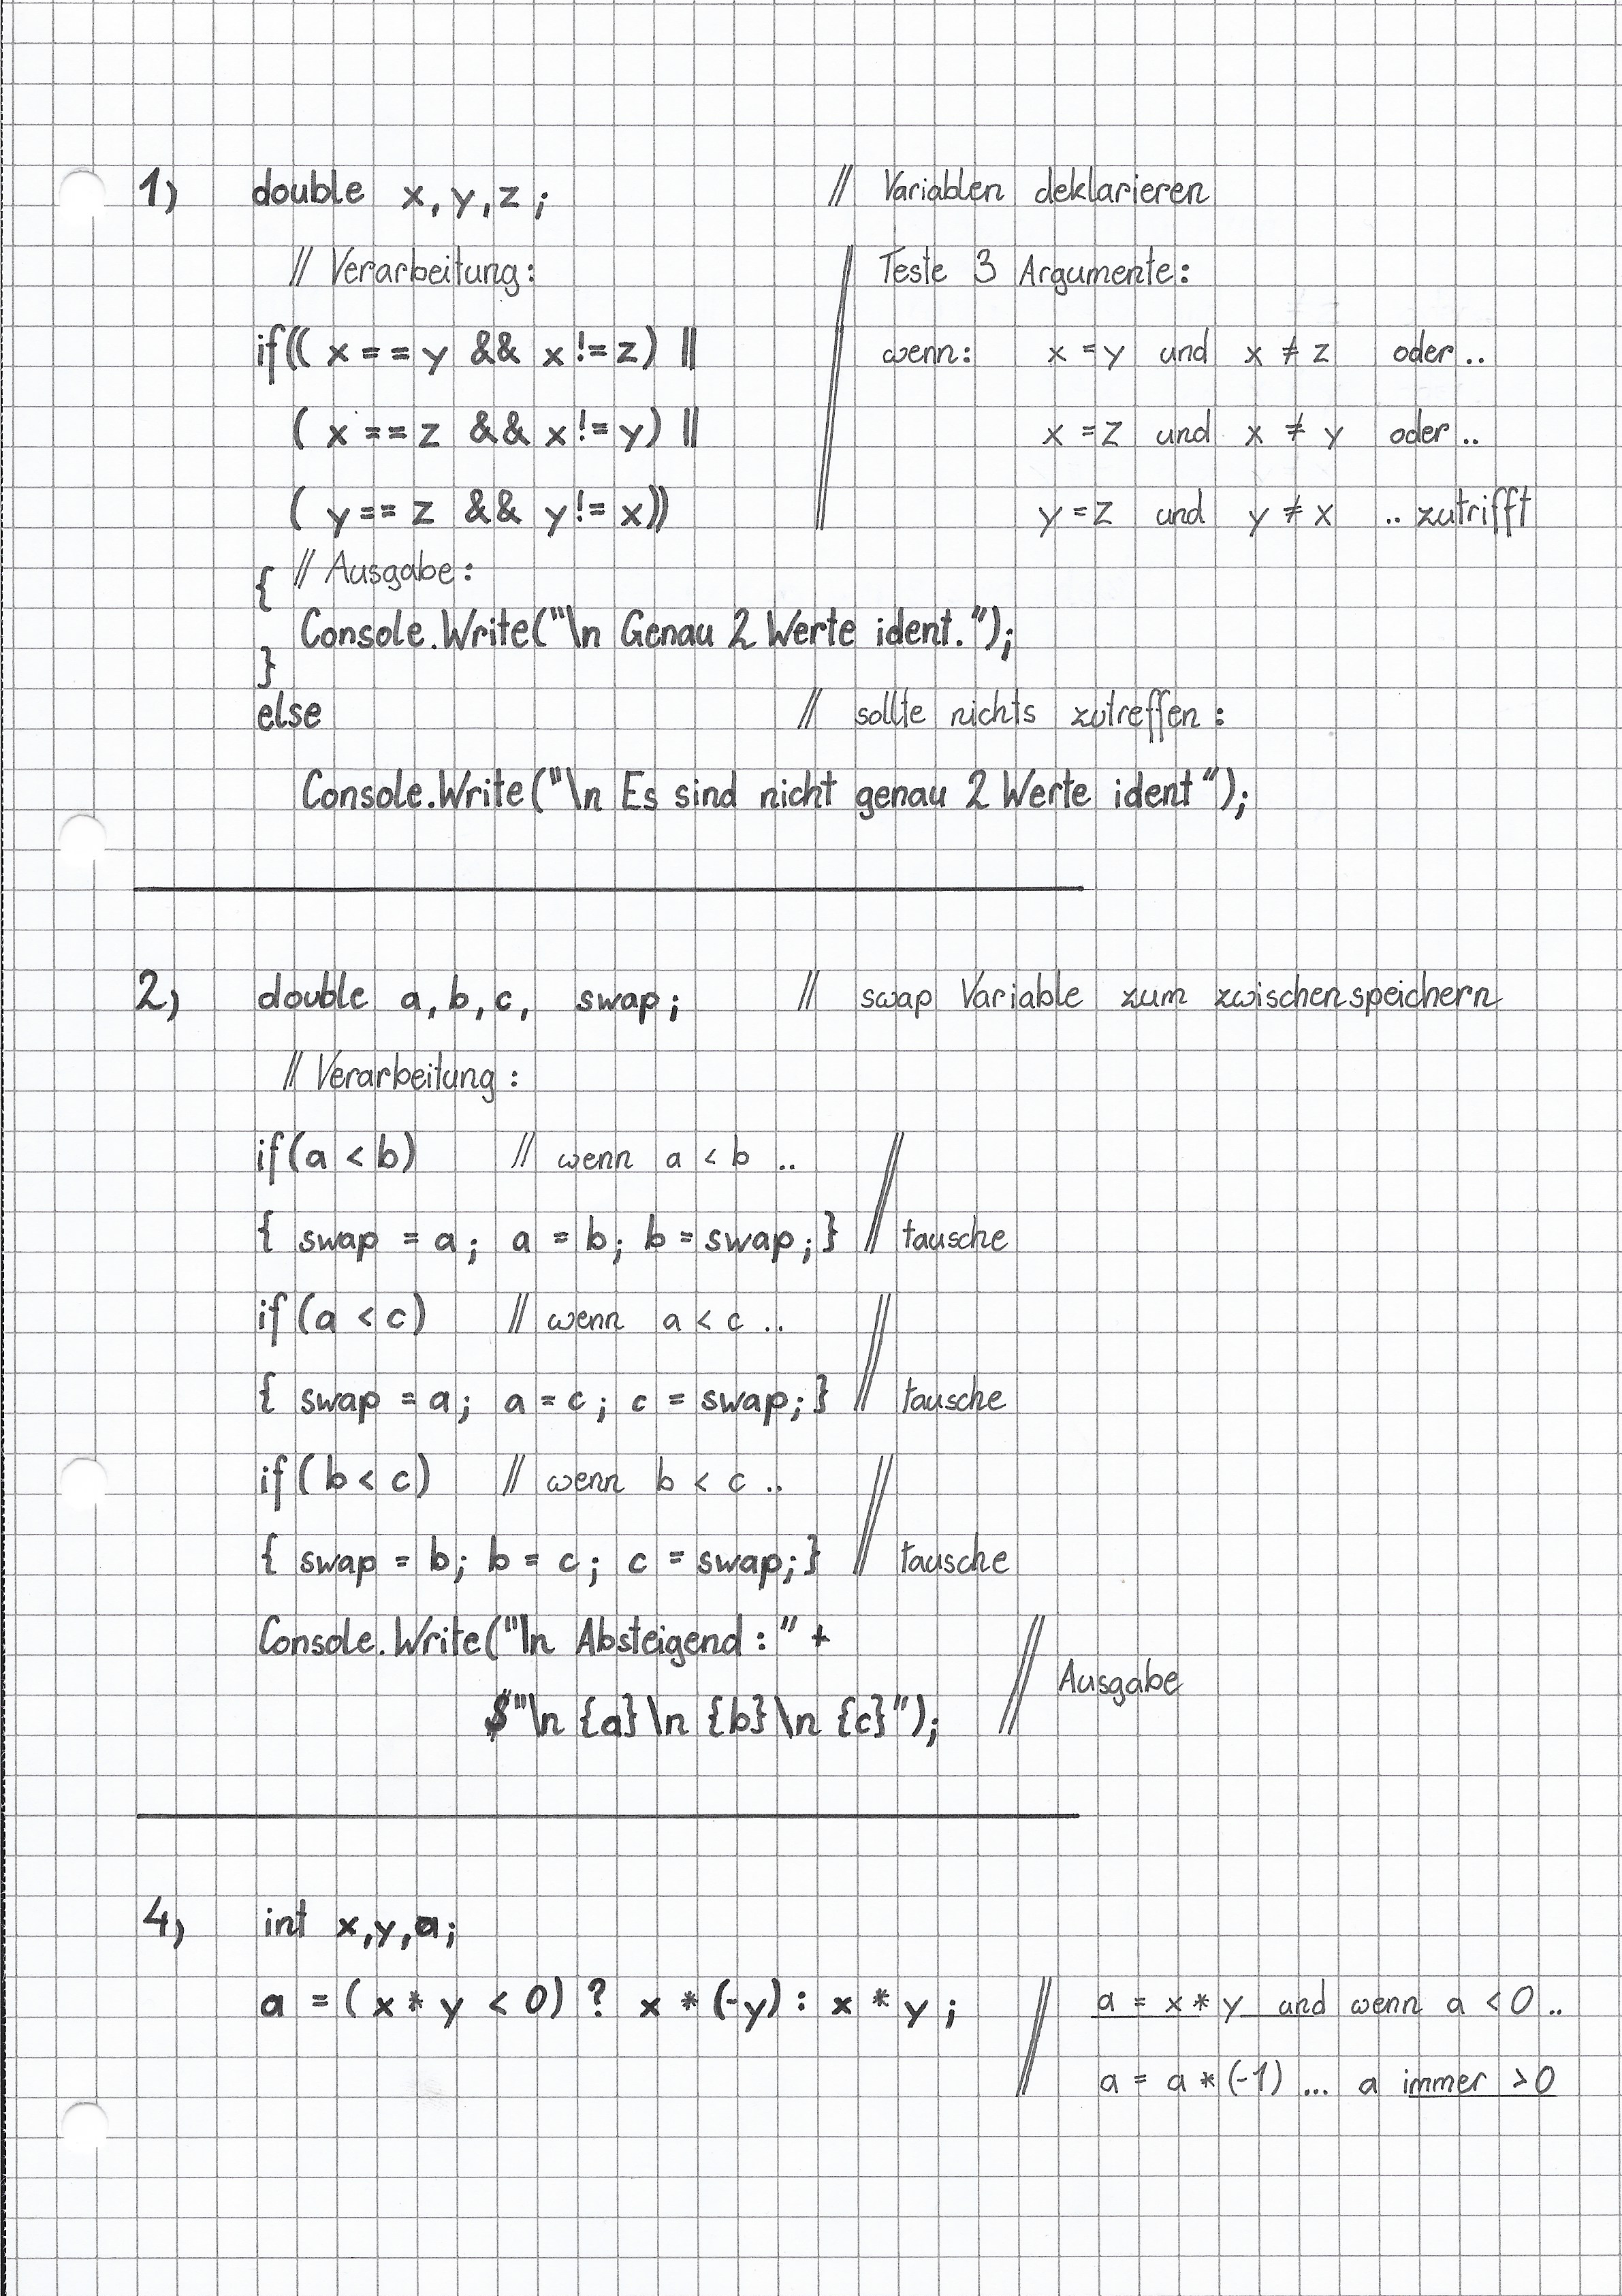 1) double x, y, z; // Variablen deklarieren
// Verarbeitung: // Teste 3 Argumente:
if(( x == y && x != z) || wenn: x = y und x ≠ z oder ..
( x == z && x != y) || x = z und x ≠ y oder ..
( y == z && y != x)) y = z und y ≠ x .. zutrifft
{ // Ausgabe:
Console.Write("\n Genau 2 Werte ident.");
}
else // sollte nichts zutreffen:
Console.Write("\n Es sind nicht genau 2 Werte ident");
2) double a, b, c, swap; // swap Variable zum zwischenspeichern
// Verarbeitung:
if(a < b) // wenn a < b ..
{ swap = a; a = b; b = swap; } // tausche
if(a < c) // wenn a < c ..
{ swap = a; a = c; c = swap; } // tausche
if(b < c) // wenn b < c ..
{ swap = b; b = c; c = swap; } // tausche
Console.Write("\n Absteigend:" +
// Ausgabe
$"\n {a}\n {b}\n {c}");
4) int x,y,a;
a = ( x * y < 0) ? x * (-y) : x * y; // a = x * y und wenn a < 0 ..
a = a * (-1) ... a immer > 0